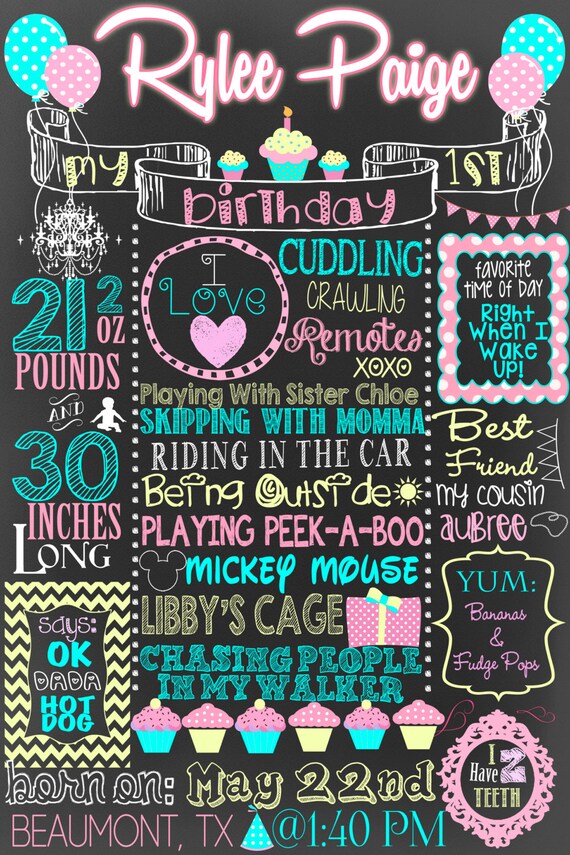 Rylee Paige
my
birthday
1ST
I
Love
CUDDLING
CRAWLING
Remotes
XOXO
Playing With Sister Chloe
SKIPPING WITH MOMMA
RIDING IN THE CAR
Being Outside
PLAYING PEEK-A-BOO
MICKEY MOUSE
LIBBY'S CAGE
CHASING PEOPLE
IN MY WALKER
21 2
OZ
POUNDS
AND
30
INCHES
LONG
says:
OK
DADA
HOT
DOG
favorite
time of day
Right
When I
Wake
up!
Best
Friend
my cousin
aubree
YUM:
Bananas
&
Fudge Pops
I
Have 2
TEETH
born on: May 22nd
BEAUMONT, TX @1:40 PM